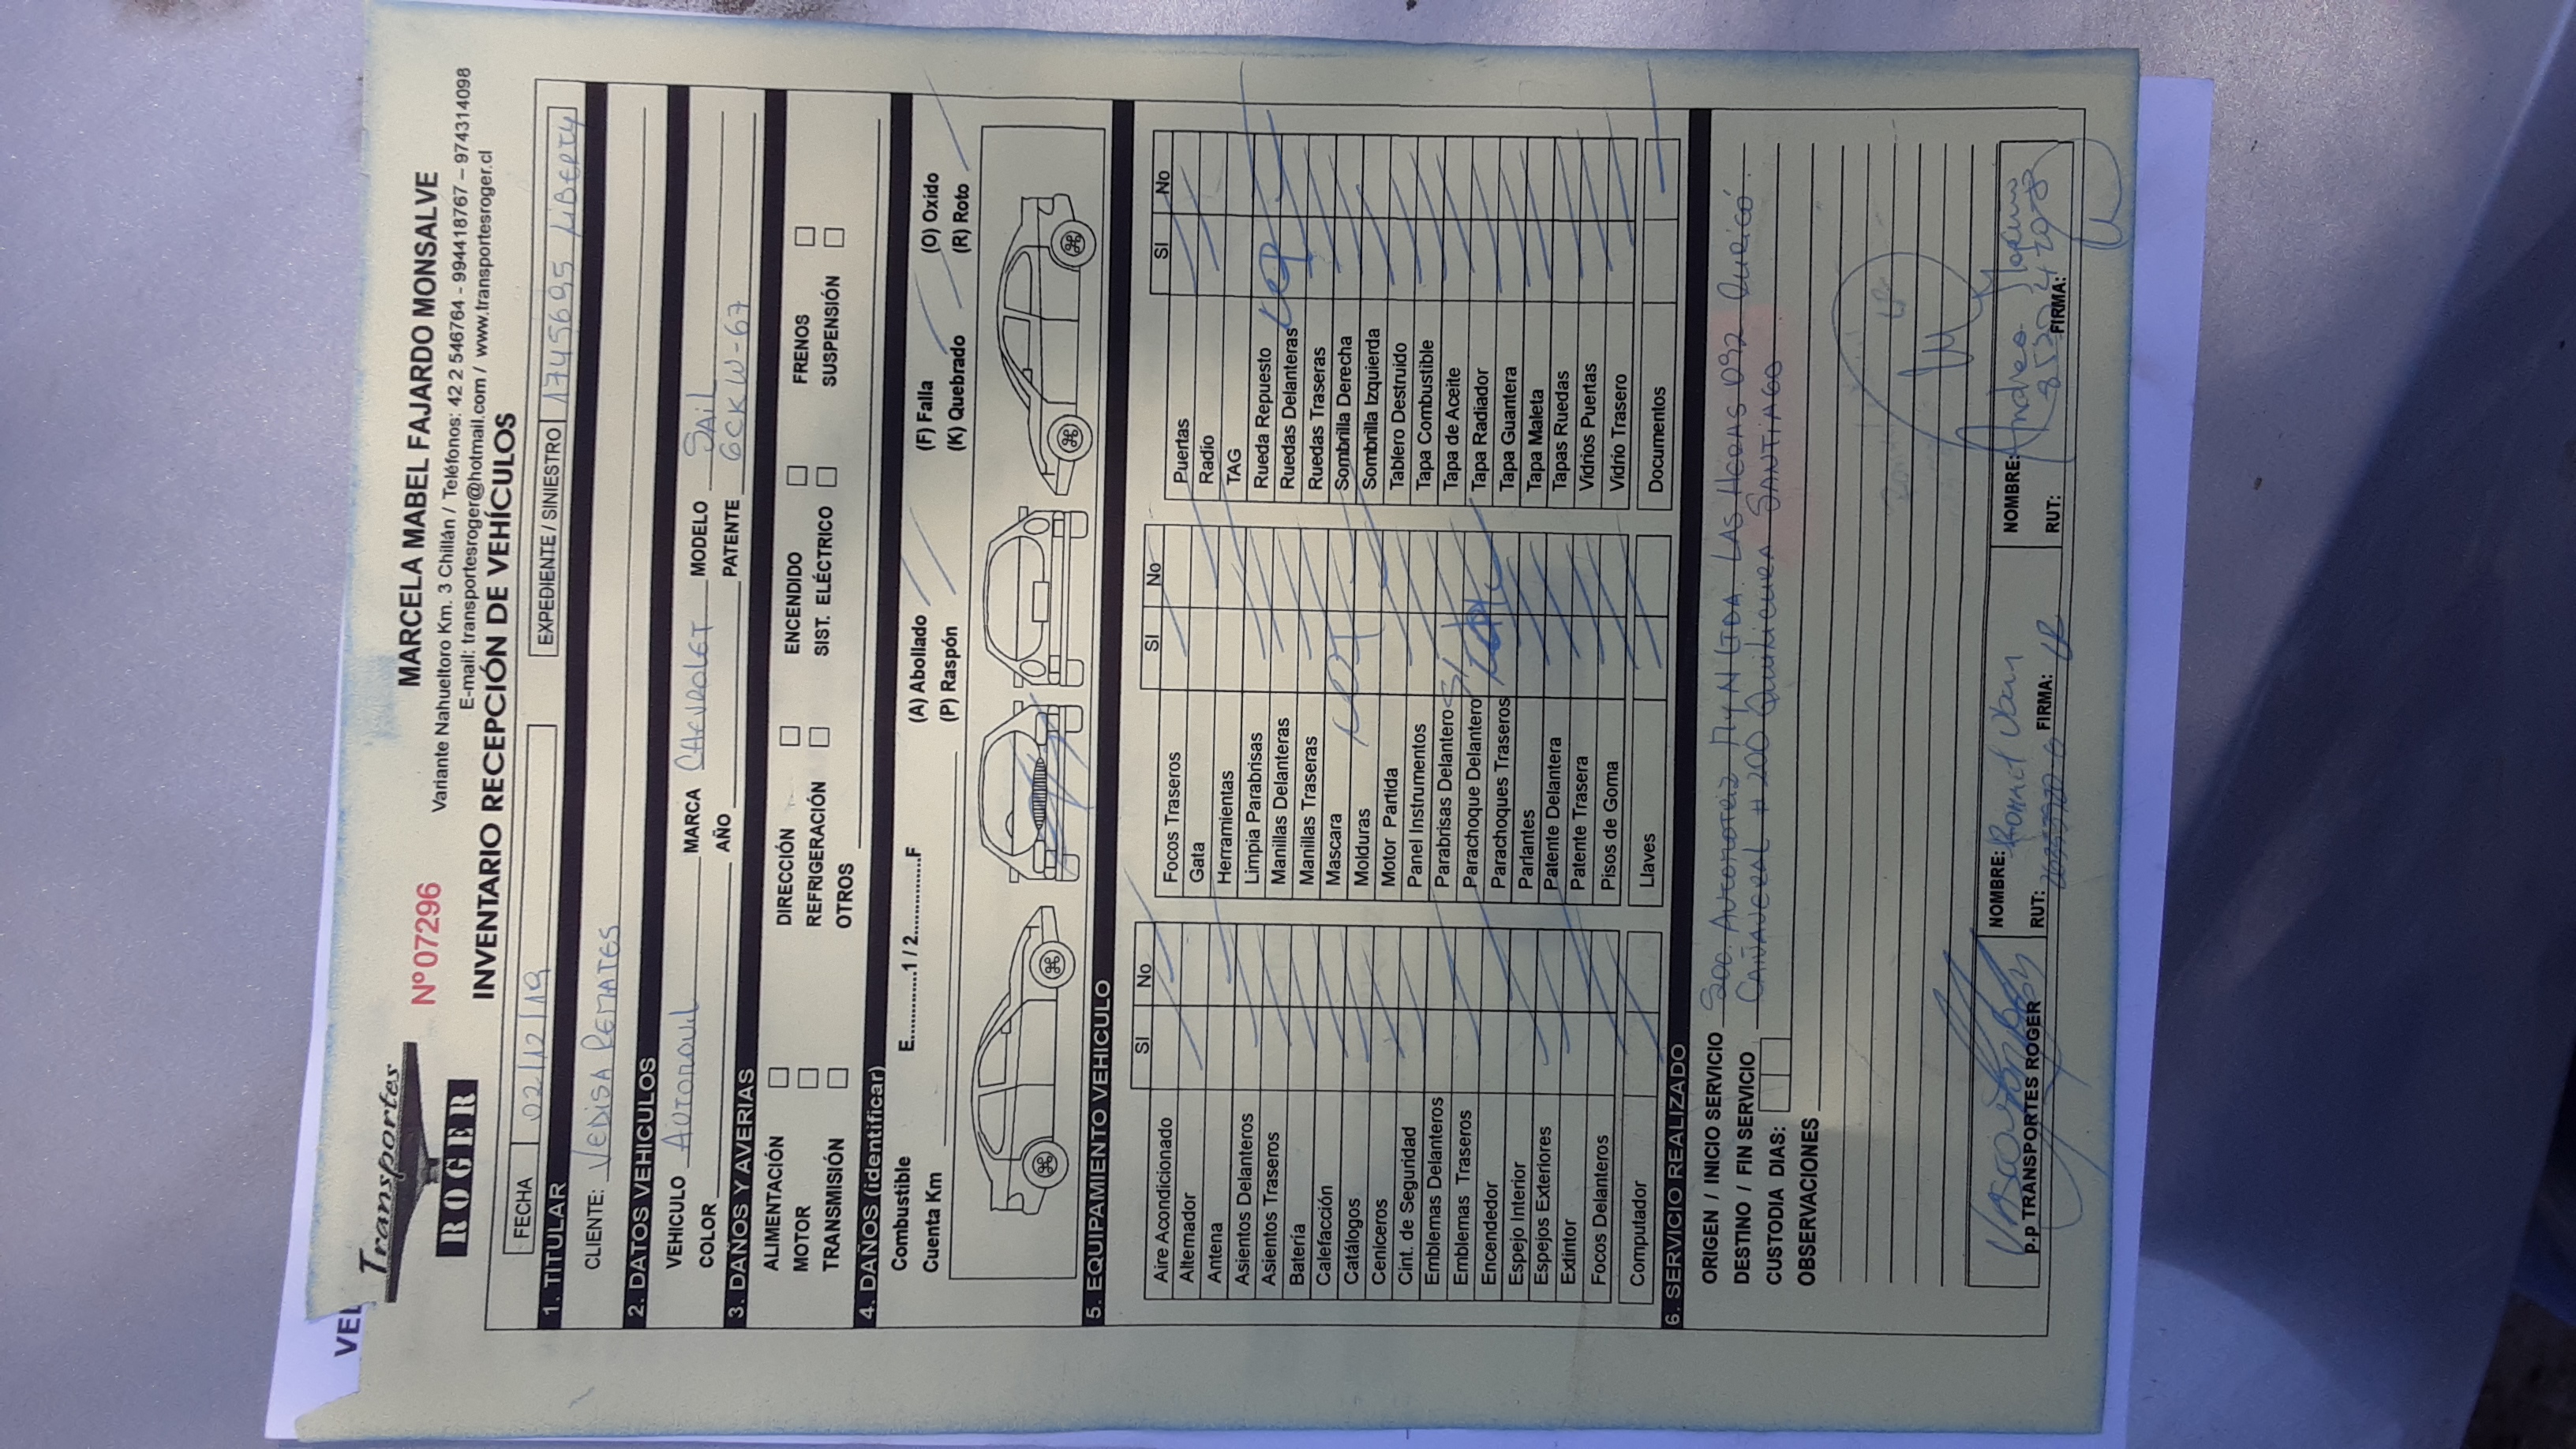 VE
Transportes
ROGER
Nº 07296
MARCELA MABEL FAJARDO MONSALVE
Variante Nahueltoro Km. 3 Chillán / Teléfonos: 42 2 546764 - 994418767 – 974314098
E-mail: transportesroger@hotmail.com / www.transportesroger.cl
INVENTARIO RECEPCIÓN DE VEHÍCULOS
FECHA 02/12/19 EXPEDIENTE / SINIESTRO LIBERTY
1. TITULAR
CLIENTE: VEDISA REMATES
2. DATOS VEHICULOS
VEHICULO AUTOMOVIL MARCA CHEVROLET MODELO SAIL
COLOR AÑO PATENTE GCKW-67
3. DAÑOS Y AVERIAS
ALIMENTACIÓN DIRECCIÓN ENCENDIDO FRENOS
MOTOR REFRIGERACIÓN SIST. ELÉCTRICO SUSPENSIÓN
TRANSMISIÓN OTROS
4. DAÑOS (identificar)
Combustible E............1 / 2..............F (A) Abollado (F) Falla (O) Oxido
Cuenta Km (P) Raspón (K) Quebrado (R) Roto
5. EQUIPAMIENTO VEHICULO
SI No SI No SI No
Aire Acondicionado Focos Traseros Puertas
Alternador Gata Radio
Antena Herramientas TAG
Asientos Delanteros Limpia Parabrisas Rueda Repuesto
Asientos Traseros Manillas Delanteras Ruedas Delanteras
Batería Manillas Traseras Ruedas Traseras
Calefacción Mascara Sombrilla Derecha
Catálogos Molduras Sombrilla Izquierda
Ceniceros Motor Partida Tablero Destruido
Cint. de Seguridad Panel Instrumentos Tapa Combustible
Emblemas Delanteros Parabrisas Delantero Tapa de Aceite
Emblemas Traseros Parachoque Delantero Tapa Radiador
Encendedor Parachoques Traseros Tapa Guantera
Espejo Interior Parlantes Tapa Maleta
Espejos Exteriores Patente Delantera Tapas Ruedas
Extintor Patente Trasera Vidrios Puertas
Focos Delanteros Pisos de Goma Vidrio Trasero
Computador Llaves Documentos
6. SERVICIO REALIZADO
ORIGEN / INICIO SERVICIO Soc. AUTOMOTRIZ MYN LTDA. LAS HERAS 092 Curicó.
DESTINO / FIN SERVICIO CAÑAVERAL # 200 Quilicura SANTIAGO
CUSTODIA DIAS:
OBSERVACIONES
P.p TRANSPORTES ROGER
NOMBRE: NOMBRE: Andrea
RUT: FIRMA: RUT: FIRMA: